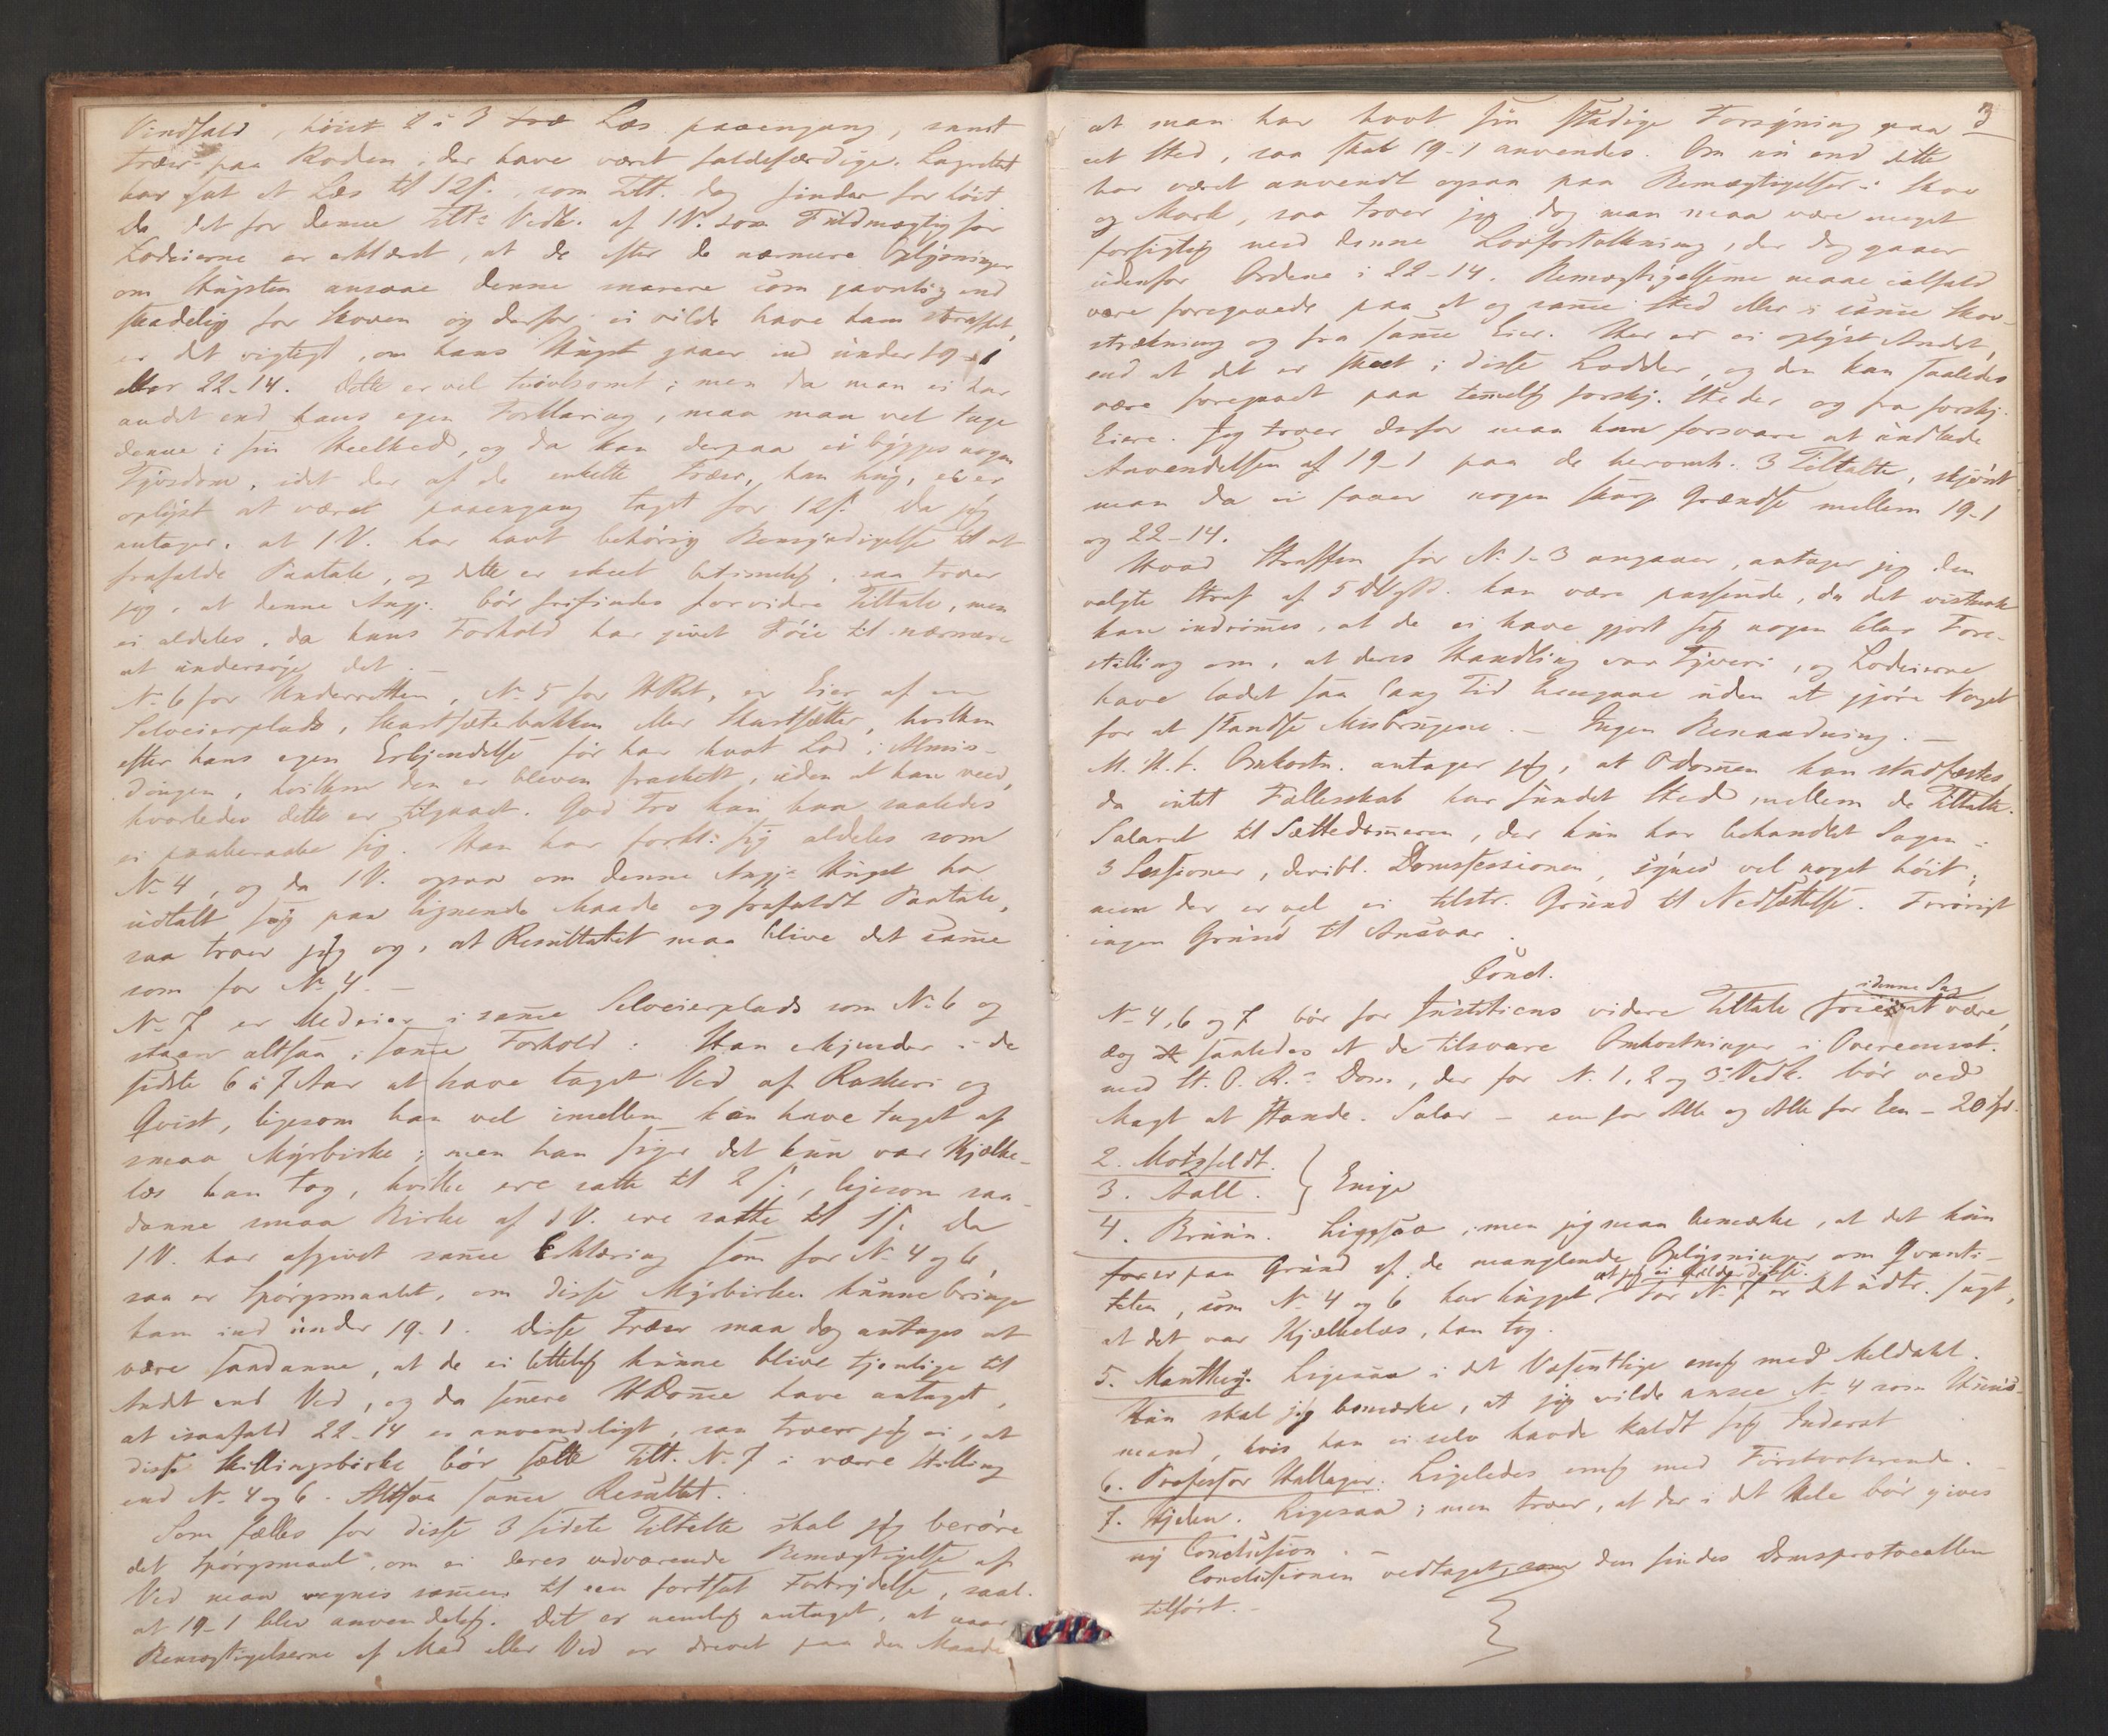 Vindfald, høist 2 à 3 træ Læs paaengang, samt
Træer paa Roden, der have været faldefærdige. Lagrettet
har sat et Læs til 12 s., som Tilt. dog finder for høit
Da det for denne Tilt.s Vedk. af 1 V. som Fuldmægtig for
Lodeierne er erklæret, at de efter de nærmere Oplysninger
om Hugsten ansaae denne snarere som gavnlig end
skadelig for Skoven og derfor ei vilde have ham straffet,
er det vigtigt, om hans Hugst gaaer ind under 19-1
eller 22-14. Dette er vel tvivlsomt; men da man ei har
andet end hans egen Forklaring, maa man vel tage
denne i sin Heelhed, og da kan derpaa ei bygges nogen
Tyvsdom, idet der af de enkelte Træer, han hug, ei er
oplyst at været paaengang taget for 12 s. Da jeg
antager, at 1 V. har havt behørig Bemyndigelse til at
frafalde Paatale, og dette er skeet betimelig, saa troer
jeg, at denne Angj. bør frifindes for videre Tiltale, men
ei aldeles, da hans Forhold har givet Føie til nærmere
at undersøge det. —
N. 6 for Underretten, N. 5 for HRet, er Eier af en
Selveierplads, Skartsætebakken eller Skartsætter, hvilken
efter hans egen Erkjendelse før har havt Lod i Almin-
dingen, hvilken den er bleven fraskilt, uden at han veed,
hvorledes dette er tilgaaet. God Tro kan han saaledes
ei paaberaabe sig. Han har forkl. sig aldeles som
N. 4, og da 1 V. ogsaa om denne Angj.s Hugst har
udtalt sig paa lignende Maade og frafaldt Paatale,
saa troer jeg og, at Resultatet maa blive det samme
som for N. 4. —
N. 7 er Medeier i samme Selveierplads som N. 6 og
staaer altsaa i samme Forhold. Han erkjender i de
sidste 6 à 7 Aar at have taget Ved af Raskeri og
Qvist, ligesom han vel imellem kan have taget af
smaa Myrbirke; men han siger det kun var Kjælke-
læs han tog, hvilke ere satte til 2 s., ligesom saa-
danne smaa Birke af 1 V. ere satte til 1 s. Da
1 V. har afgivet samme Erklæring som for N. 4 og 6,
saa er Spørgsmaalet, om disse Myrbirker kunne bringe
ham ind under 19-1. Disse Træer maa dog antages at
være saadanne, at de ei lettelig kunne blive tjenlige til
Andet end Ved, og da senere HDomme have antaget,
at isaafald 22-14 er anvendeligt, saa troer jeg ei, at
disse Skillingsbirke bør sætte Tilt. N. 7 i værre Stilling
end N. 4 og 6. Altsaa samme Resultat.
Som fælles for disse 3 sidste Tiltalte skal jeg berøre
det Spørgsmaal, om ei deres vedvarende Bemægtigelse af
Ved maa regnes sammen til een fortsat Forbrydelse, saal.
at 19-1 blev anvendelig. Det er nemlig antaget, at naar
Bemægtigelserne af Mad eller Ved er drevet paa den Maade,
3
at man har havt sin stadige Forsyning paa
eet Sted, saa skal 19-1 anvendes. Om nu end dette
har været anvendt ogsaa paa Bemægtigelser i Skov
og Mark, saa troer jeg dog man maa være meget
forsigtig med denne Lovfortolkning, der dog gaaer
udenfor Ordene i 22-14. Bemægtigelserne maae ialfald
være foregaaede paa et og samme Sted eller i samme Skov-
strækning og fra samme Eier. Her er ei oplyst Andet,
end at det er skeet i disse Lodder, og den kan saaledes
være foregaaet paa temmelig forskj. Steder og fra forskj.
Eiere. Jeg troer derfor man kan forsvare at undlade
Anvendelsen af 19-1 paa de heromh. 3 Tiltalte, skjønt
man da ei faaer nogen skarp Grændse mellem 19-1
og 22-14.
Hvad Straffen for N. 1-3 angaaer, antager jeg den
valgte Straf af 5 D. V. og B. kan være passende, da det vistnok
kan indrømmes, at de ei have gjort sig nogen klar Fore-
stilling om, at deres Handling var Tyveri, og Lodeierne
have ladet saa lang Tid hengaae uden at gjøre Noget
for at standse Misbrugene. — Ingen Benaadning. —
M. H. t. Omkostn. antager jeg, at ODommen kan stadfæstes,
da intet Fællesskab har fundet Sted mellem de Tiltalte.
Salaret til Sættedommeren, der kun har behandlet Sagen i
3 Sessioner, deribl. Domssessionen, synes vel noget høit;
men der er vel ei tilstr. Grund til Nedsættelse. Forøvrigt
ingen Grund til Ansvar.
Concl.
N. 4, 6 og 7 bør for Justitiens videre Tiltale i denne Sag frie at være,
dog saaledes at de tilsvare Omkostninger i Overeensst.
med St. O. R.s Dom, der for N. 1, 2 og 3s Vedk. bør ved
Magt at stande. Salar — een for Alle og Alle for Een — 20 Spd.
2. Motzfeldt.
3. Aall. } Enige
4. Bruun. Ligesaa, men jeg maa bemærke, at det kun
er paa Grund af de manglende Oplysninger om Qvanti-
teten, som N. 4 og 6 har hugget at jeg ei fælder disse. For N. 7 er det udtr. sagt,
at det var Kjælkelæs, han tog.
5. Manthey. Ligesaa i det Væsentlige enig med Meldahl.
Kun skal jeg bemærke, at jeg vilde ansee N. 4 som Huus-
mand, hvis han ei selv havde kaldt sig Inderst
6. Professor Hallager. Ligeledes enig med Førstvoterende.
7. Hjelm. Ligesaa; men troer, at der i det Hele bør gives
ny Conclusion. —
Conclusionen vedtaget, som den findes Domsprotocollen
tilført. —